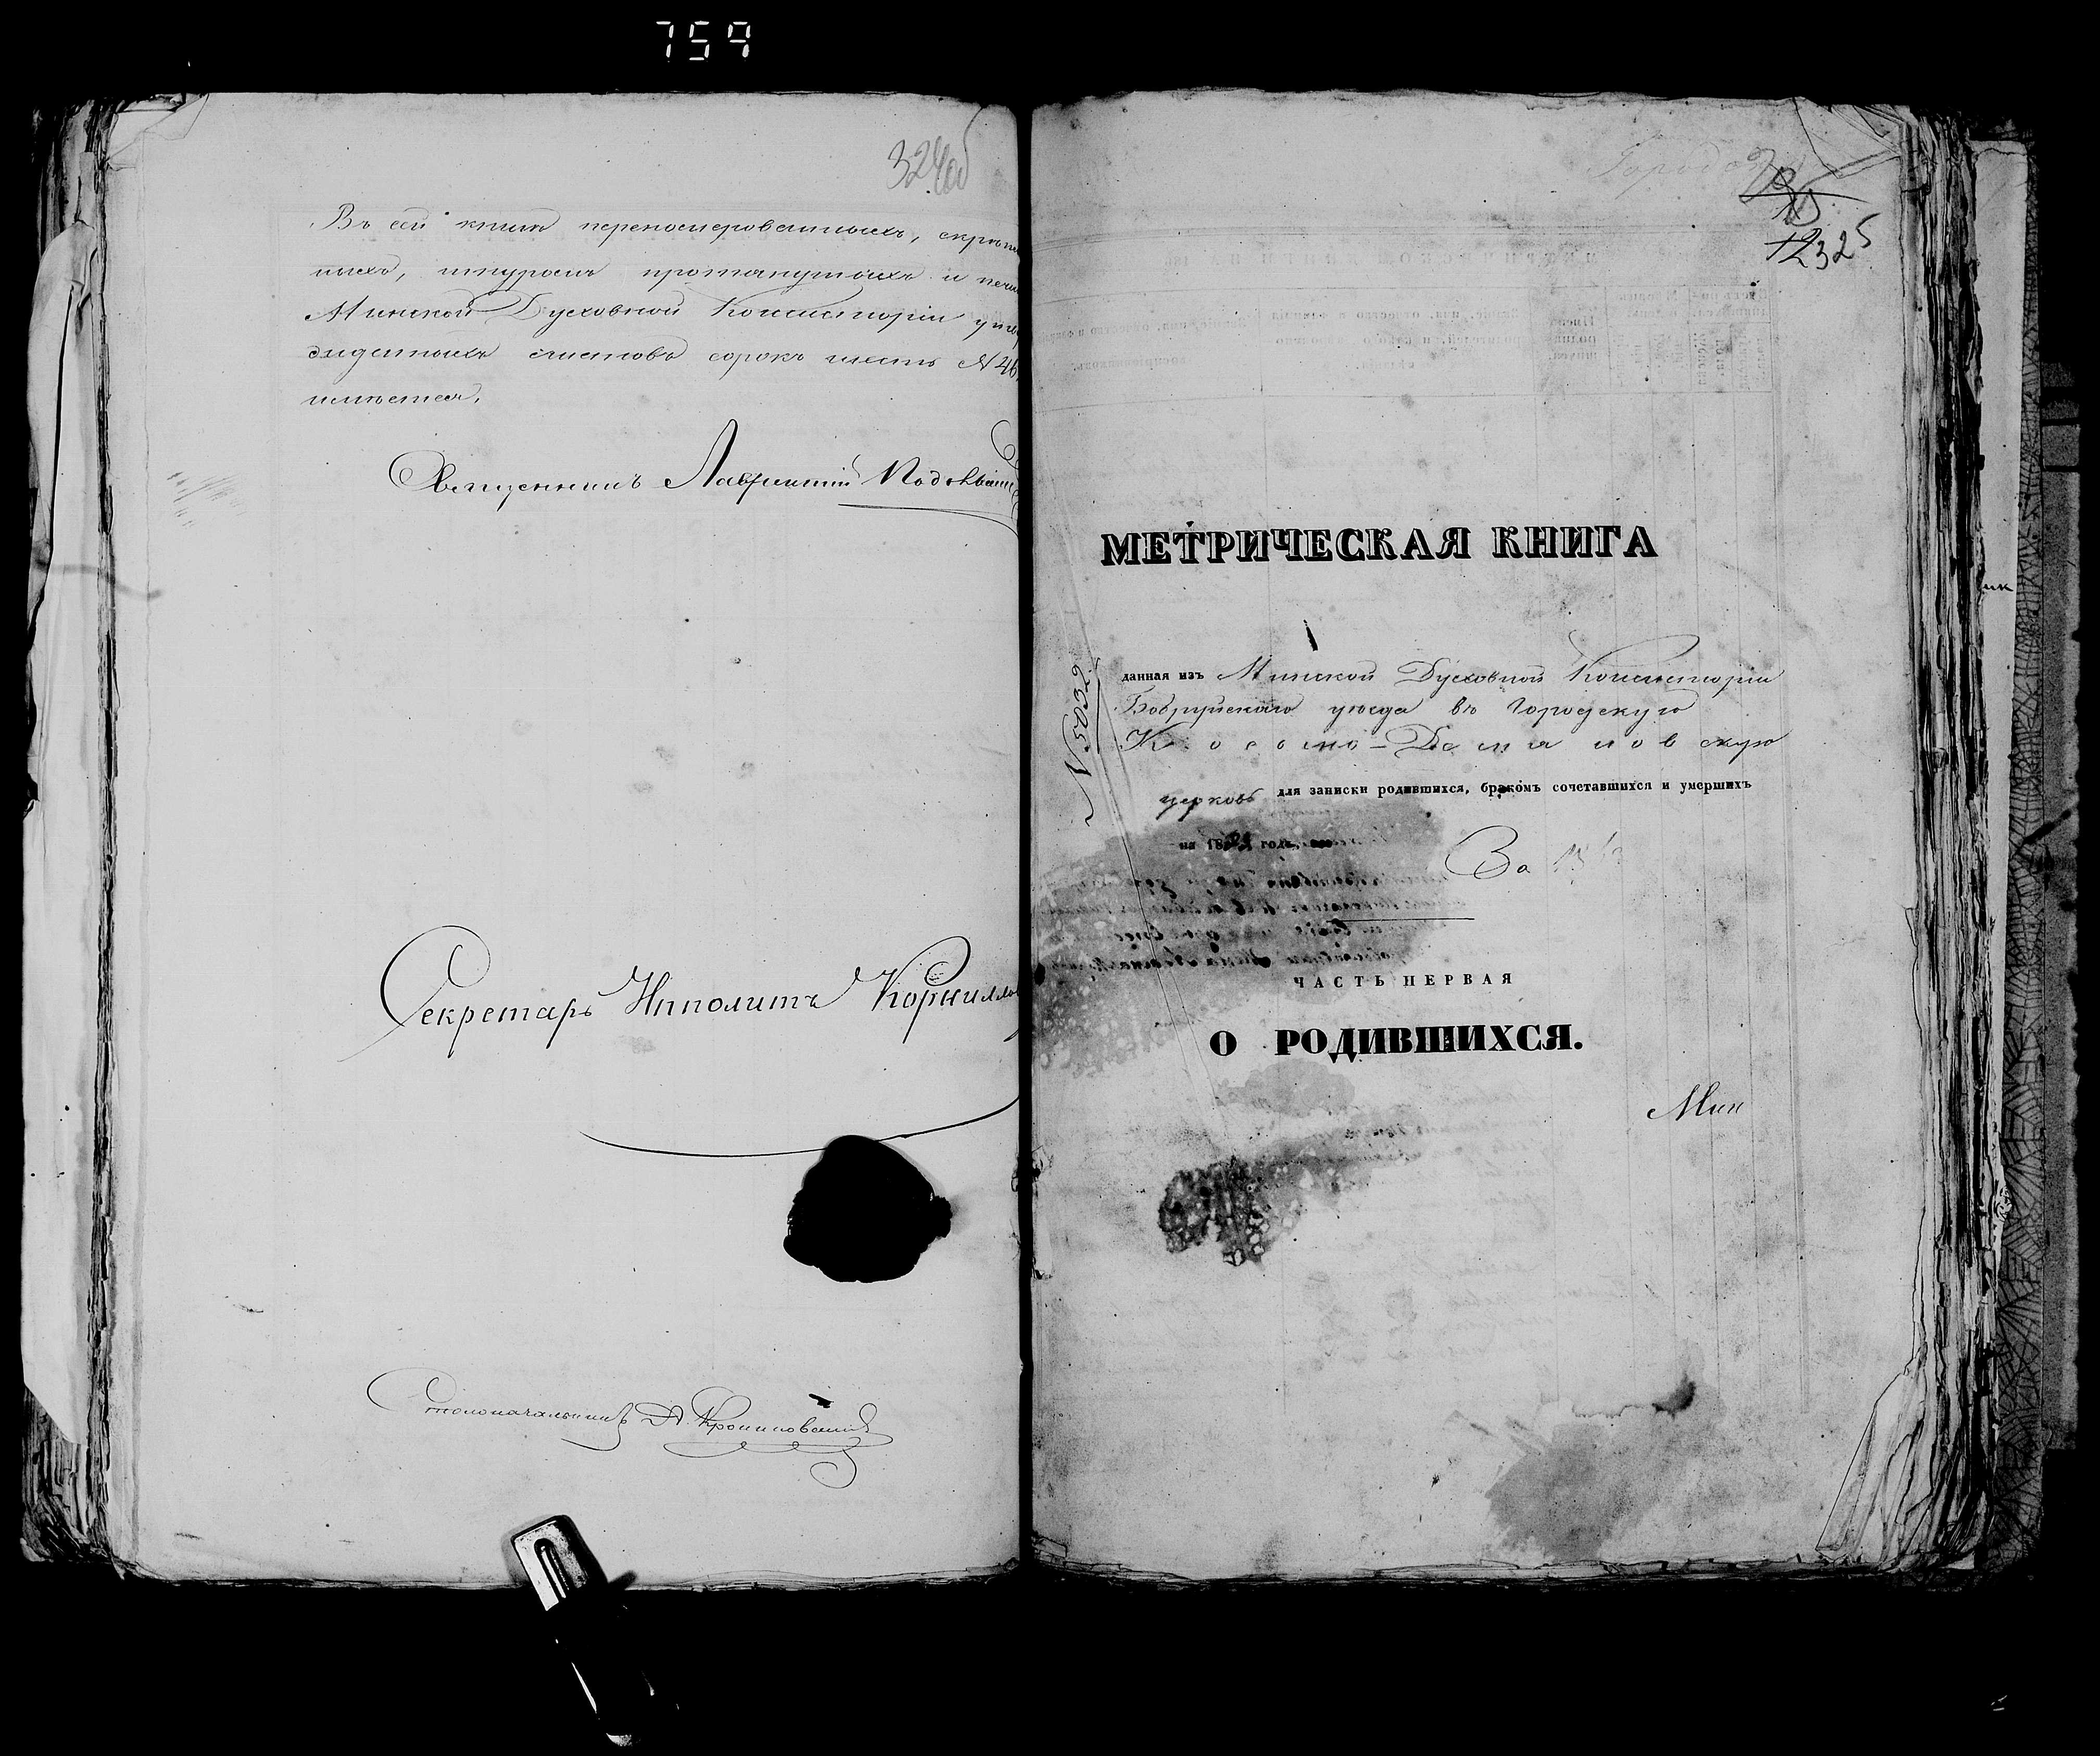 759
324об
Въ сей книге перенемерованныхъ, скреплен
ныхъ, шнуромъ протянутыхъ и печа
Минской Духовной Консисторіи утвер
жденныхъ листовъ сорокъ шесть №46
имѣется.
Священникъ Лаврентій
Секретарь Ипполитъ Корнилло
Столоначальникъ
325
МЕТРИЧЕСКАЯ КНИГА
№5032
данная изъ Минской Духовной Консисторіи
Бобруйскаго уѣзда въ Городскую
Космо-Демяновскую
церковь для записки родившихся, бракомъ сочетавшихся и умершихъ
на 18 годъ
За
ЧАСТЬ ПЕРВАЯ
О РОДИВШИХСЯ.
Мин